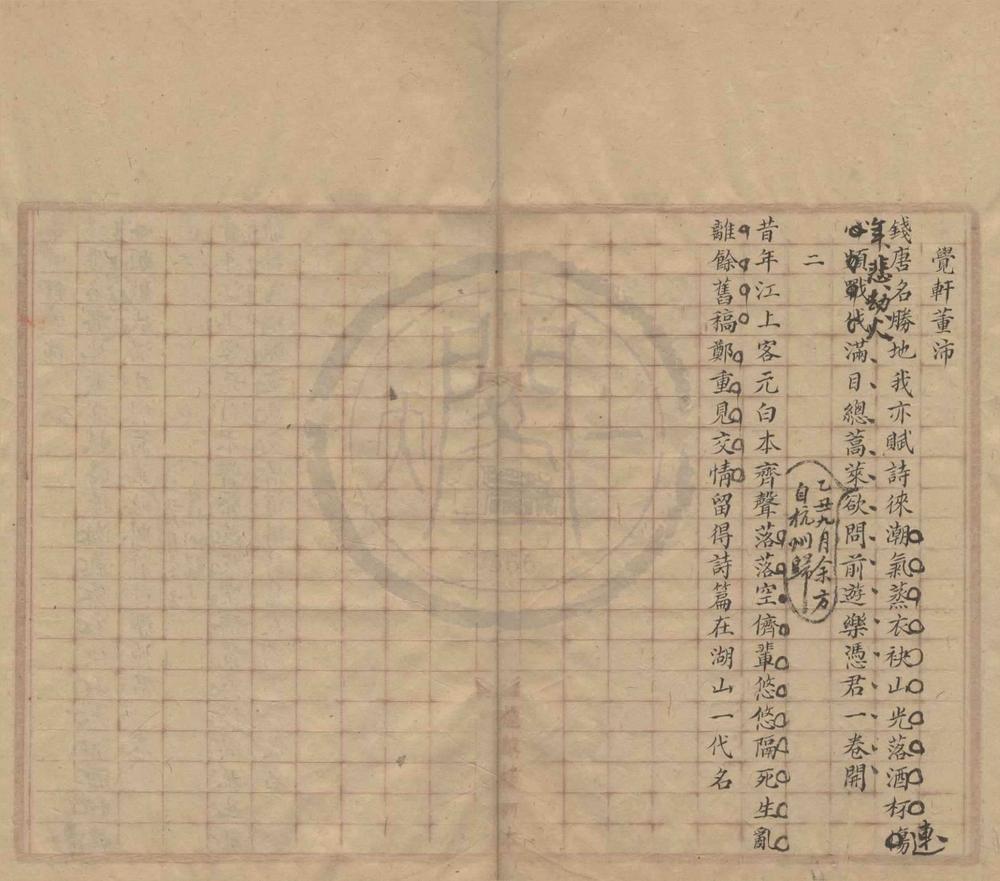 覺軒董沛
錢唐名勝地我亦賦詩徠潮氣蒸衣袂山光落酒杯傷連
年悲劫火
心頻戰伐滿目總蒿萊欲問前遊樂憑君一卷開
乙丑九月余方
自杭州歸
二
昔年江上客元白本齊聲落落空儕輩悠悠隔死生亂
離餘舊稿鄭重見交情留得詩篇在湖山一代名